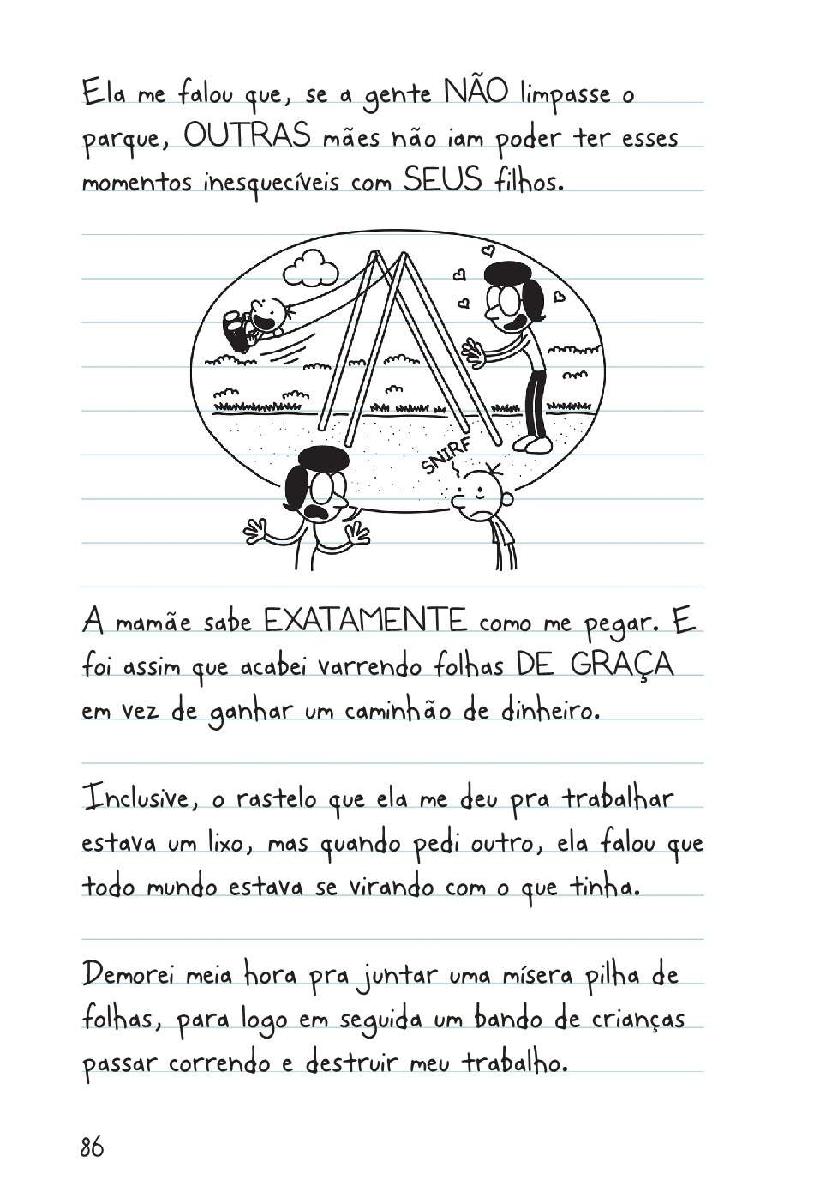 Ela me falou que, se a gente NÃO limpasse o
parque, OUTRAS mães não iam poder ter esses
momentos inesquecíveis com SEUS filhos.
SNIRF
A mamãe sabe EXATAMENTE como me pegar. E
foi assim que acabei varrendo folhas DE GRAÇA
em vez de ganhar um caminhão de dinheiro.
Inclusive, o rastelo que ela me deu pra trabalhar
estava um lixo, mas quando pedi outro, ela falou que
todo mundo estava se virando com o que tinha.
Demorei meia hora pra juntar uma mísera pilha de
folhas, para logo em seguida um bando de crianças
passar correndo e destruir meu trabalho.
86